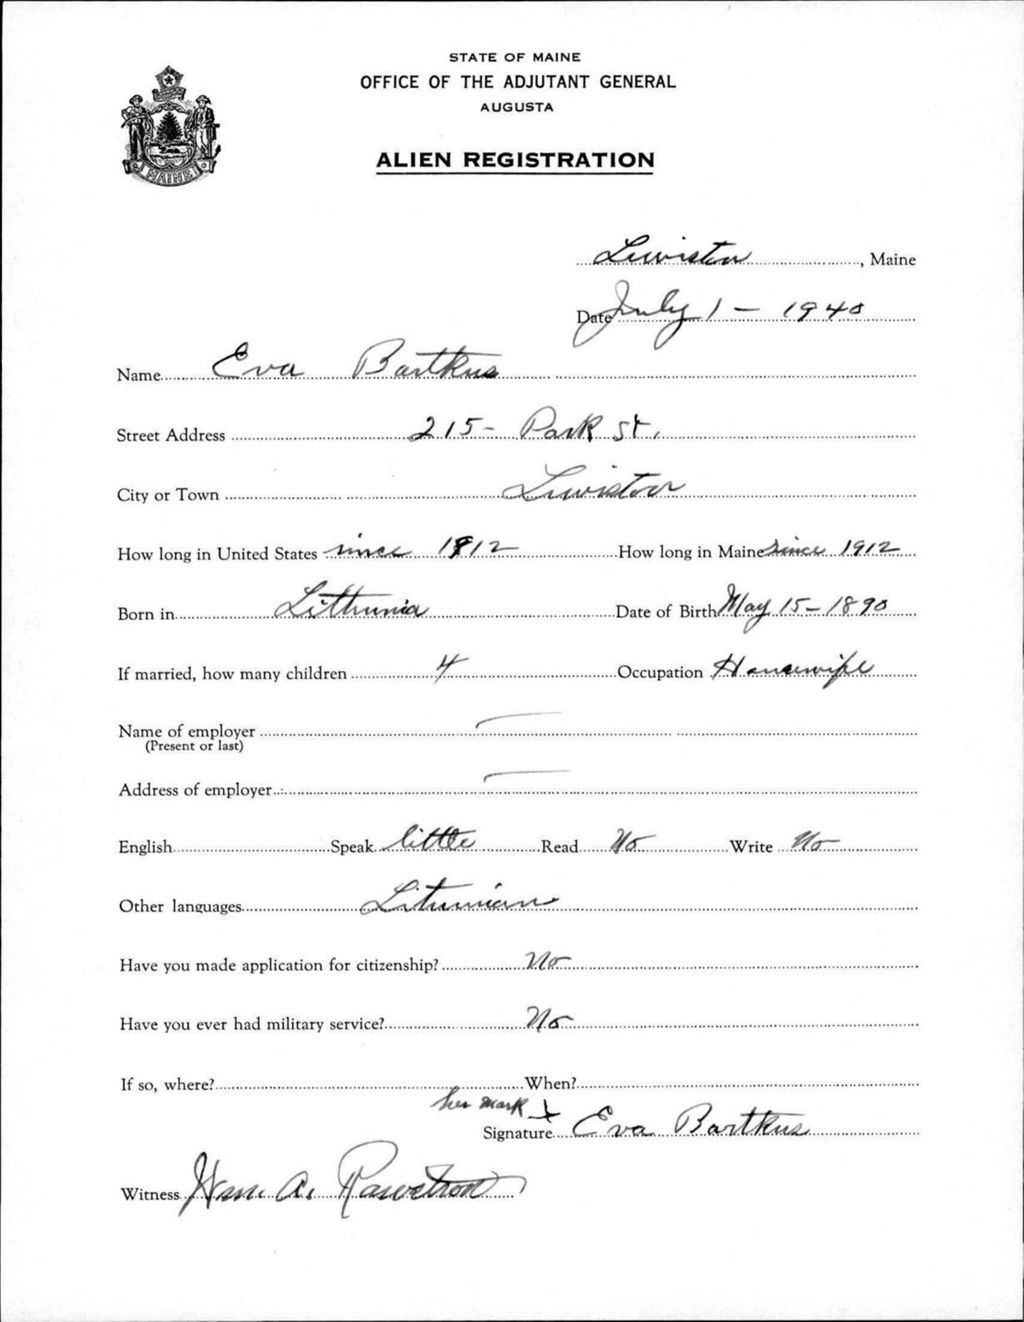 STATE OF MAINE
OFFICE OF THE ADJUTANT GENERAL
AUGUSTA
ALIEN REGISTRATION
MAINE
Lewiston, Maine
Date July 1 - 1940
Name Eva Bartkus
Street Address 215 - Park St.
City or Town Lewiston
How long in United States since 1912 How long in Maine since 1912
Born in Lithunia Date of Birth May 15 - 1890
If married, how many children 4 Occupation Housewife
Name of employer —
(Present or last)
Address of employer —
English Speak little Read No Write No
Other languages Litunian
Have you made application for citizenship? No
Have you ever had military service? No
If so, where? When?
her mark +
Signature Eva Bartkus
Witness Wm. A. Rawstron